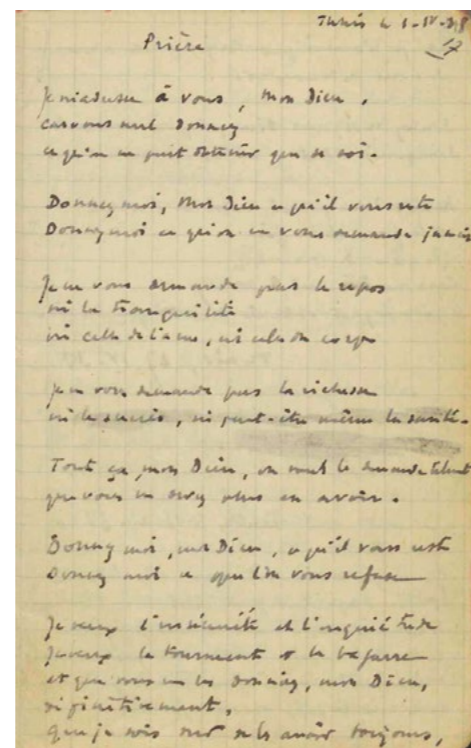 Tunis le 1-IV-38
17
Prière
Je m'adresse à vous, mon Dieu,
car vous seul donnez
ce qu'on ne peut obtenir que de soi.
Donnez moi, mon Dieu ce qu'il vous reste
Donnez moi ce qu'on ne vous demande jamais
Je ne vous demande pas le repos
ni la tranquillité
ni celle de l'ame, ni celle du corps
Je ne vous demande pas la richesse
ni le succès, ni peut-être même la santé.
Tout ça mon Dieu, on vous le demande telement
que vous ne devez plus en avoir.
Donnez moi, mon Dieu, ce qu'il vous reste
Donnez moi ce que l'on vous refuse
Je veux l'insécurité et l'inquiétude
Je veux la tourmente et la bagarre
et que vous me les donniez, mon Dieu,
définitivement,
que je sois sur de les avoir toujours,